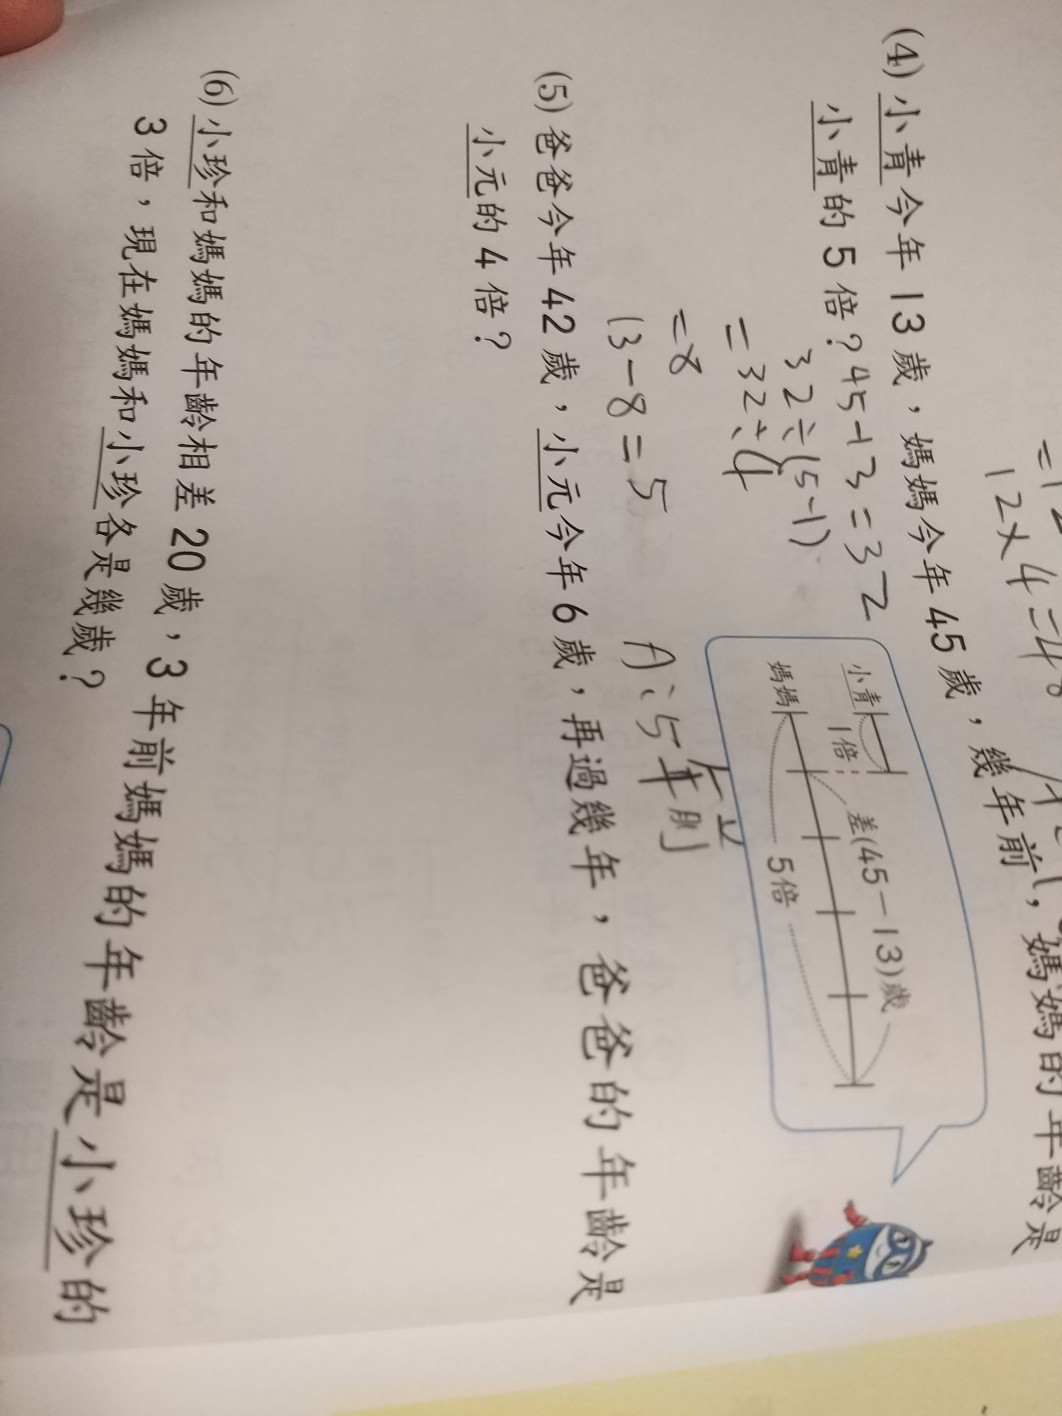 12×4=48
(4) 小青今年13歲，媽媽今年45歲，幾年前，媽媽的年齡是
小青的5倍？
45-13=32
32÷(5-1)
=32÷4
=8
13-8=5
A:5年前
小青
1倍
差(45-13)歲
媽媽
5倍
(5) 爸爸今年42歲，小元今年6歲，再過幾年，爸爸的年齡是
小元的4倍？
(6) 小珍和媽媽的年齡相差20歲，3年前媽媽的年齡是小珍的
3倍，現在媽媽和小珍各是幾歲？